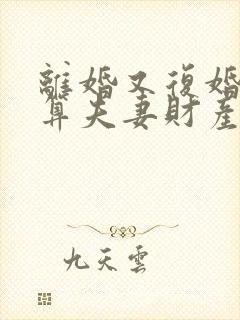 離婚又復婚
算夫妻財產
九天雲